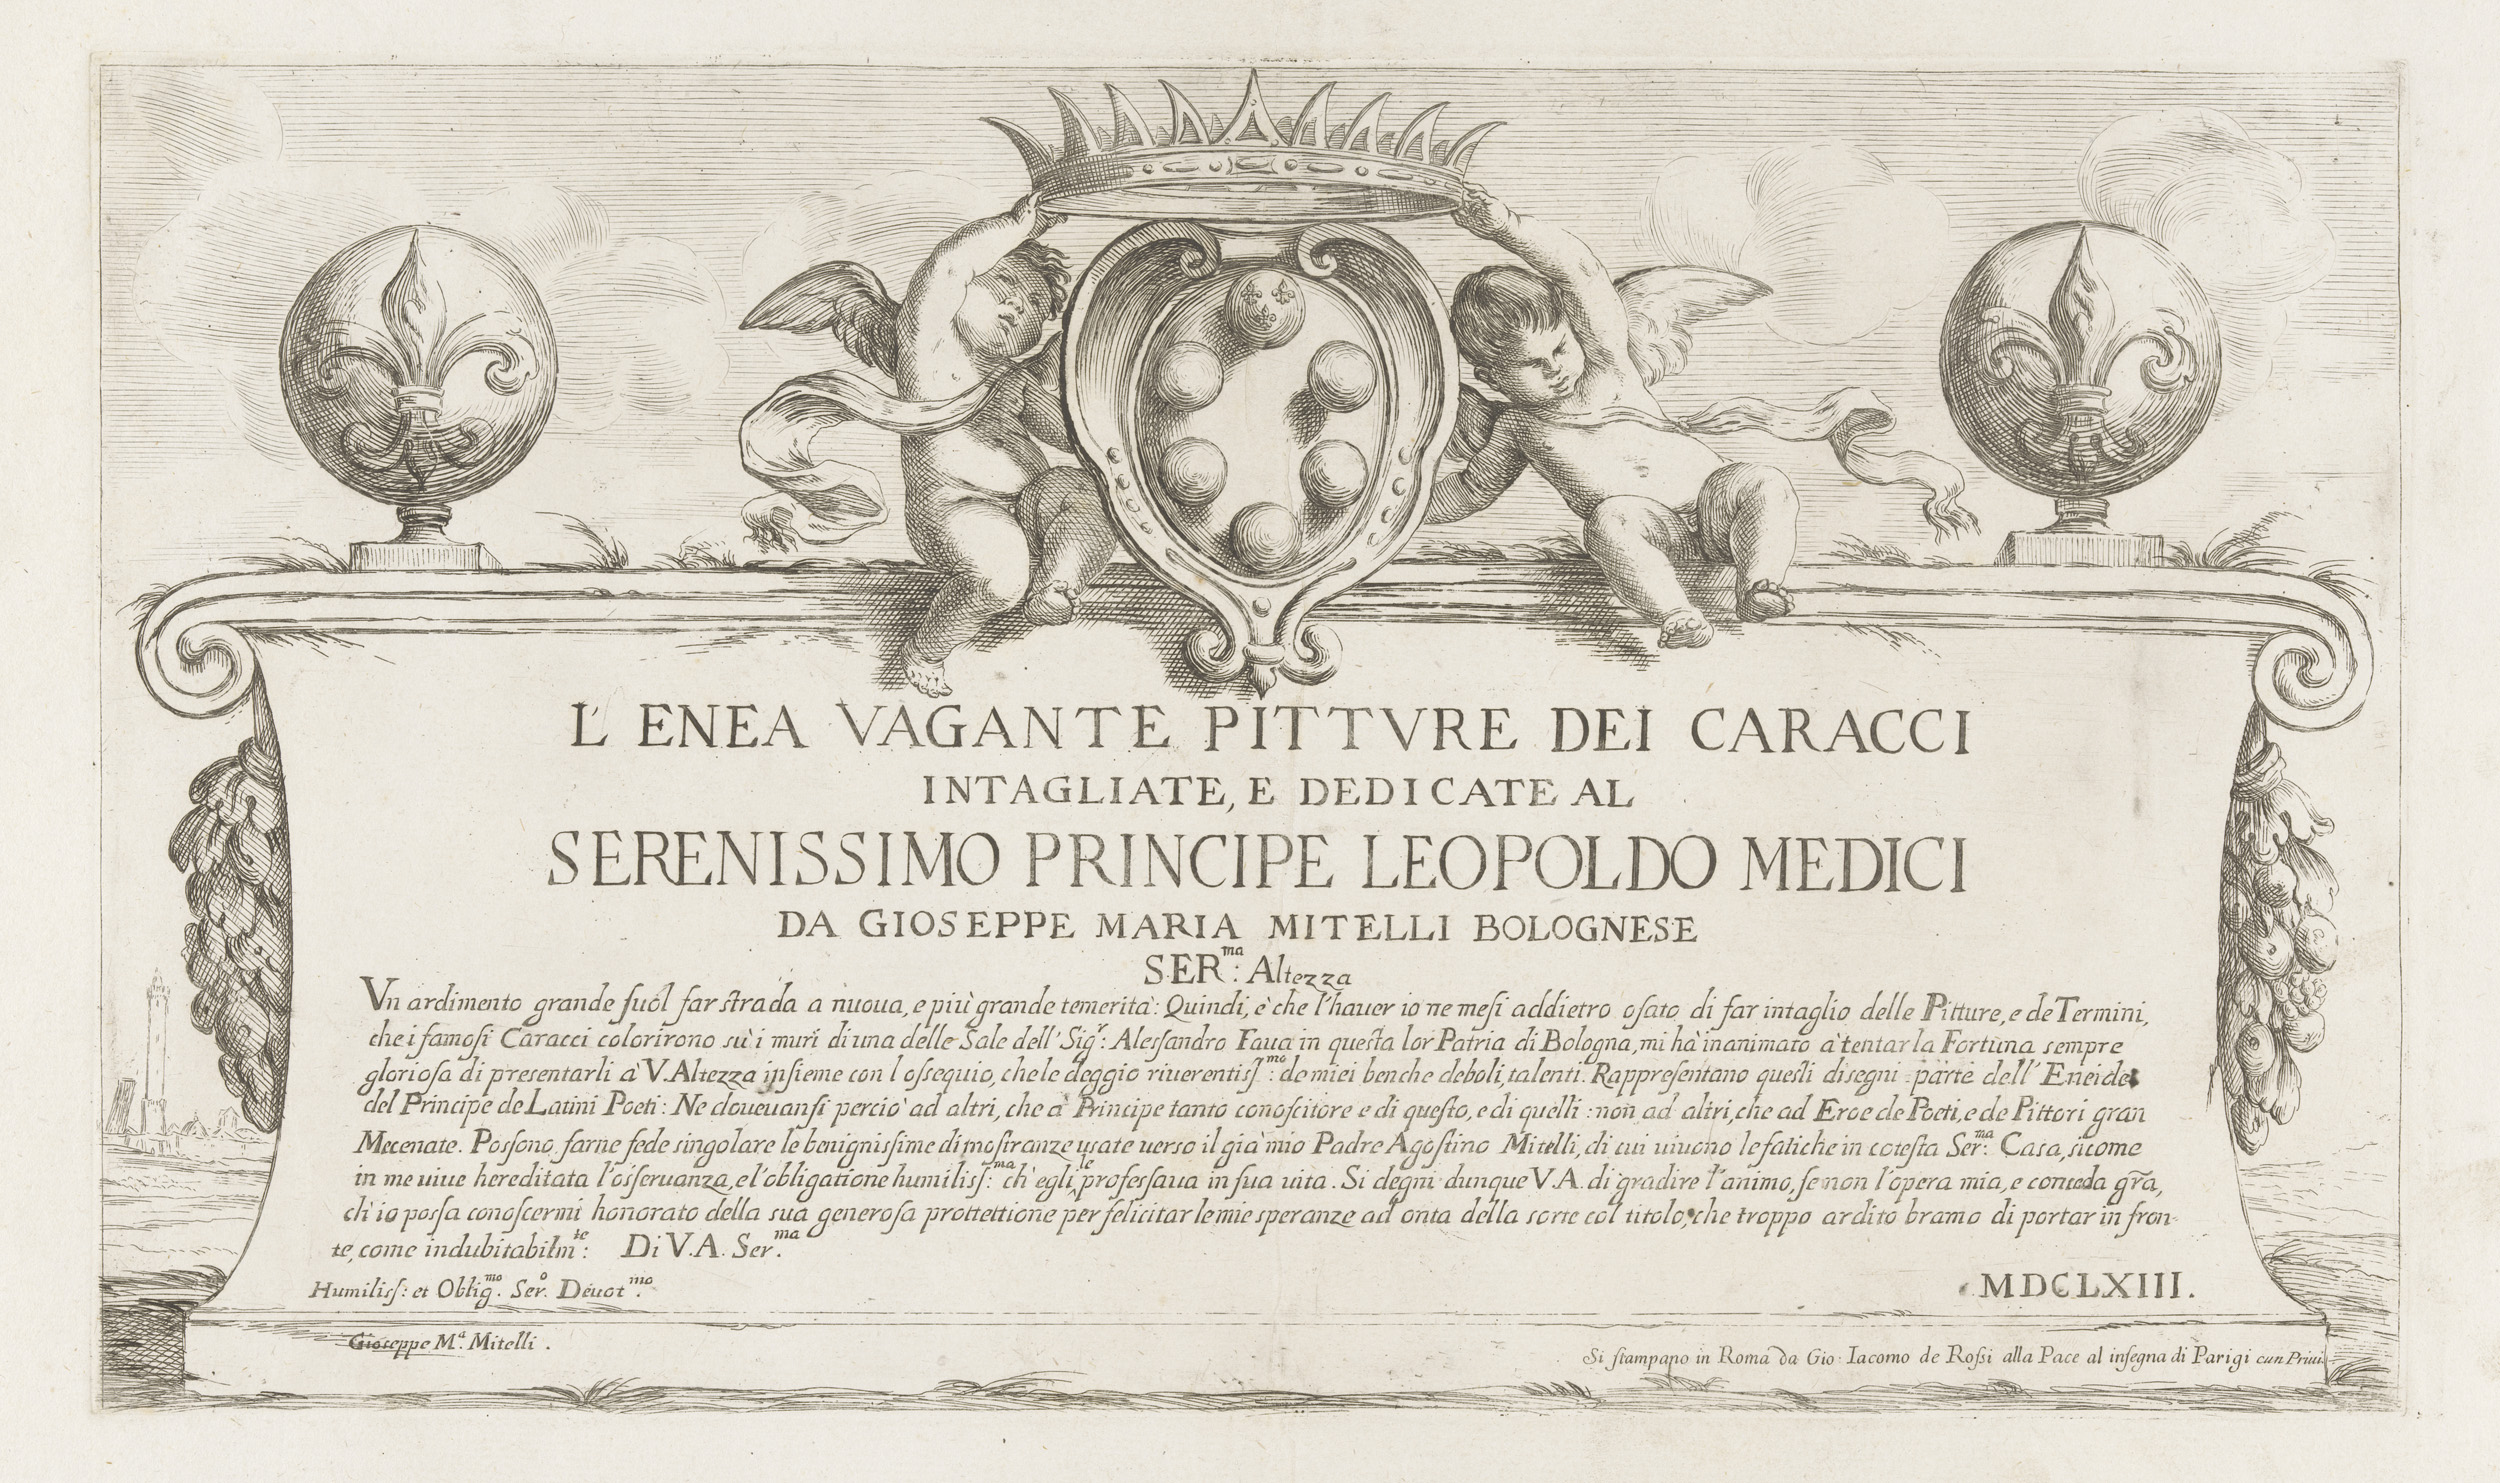 L' ENEA VAGANTE PITTVRE DEI CARACCI
INTAGLIATE, E DEDICATE AL
SERENISSIMO PRINCIPE LEOPOLDO MEDICI
DA GIOSEPPE MARIA MITELLI BOLOGNESE
SER.ma: Altezza
Vn ardimento grande suol far strada a nuoua, e più grande temerità: Quindi, è che l'hauer io ne mesi addietro osato di far intaglio delle Pitture, e de Termini,
che i famosi Caracci colorirono sù i muri di una delle Sale dell' Sig.r: Alessandro Faua in questa lor Patria di Bologna, mi hà inanimato à tentar la Fortuna sempre
gloriosa di presentarli à V. Altezza insieme con l ossequio, che le deggio riuerentiss.mo: de miei benche deboli talenti. Rappresentano questi disegni parte dell' Eneide
del Principe de Latini Poeti: Ne doueuansi perciò ad altri, che à Principe tanto conoscitore e di questo, e di quelli: non ad altri, che ad Eroe de Poeti, e de Pittori gran
Mecenate. Possono farne fede singolare le benignissime dimostranze usate uerso il già mio Padre Agostino Mitelli, di cui uiuono le fatiche in cotesta Ser.ma: Casa, sicome
in me uiue hereditata l'osseruanza, e l'obligatione humiliss.ma: ch' egli le professaua in sua uita. Si degni dunque V. A. di gradire l'animo, se non l'opera mia, e conceda gr̃a,
ch' io possa conoscermi honorato della sua generosa prottettione per felicitar le mie speranze ad onta della sorte col titolo, che troppo ardito bramo di portar in fron-
te, come indubitabilm.te: Di V. A. Ser.ma
Humiliss: et Oblig.mo Ser.o Deuot.mo
MDCLXIII.
Gioseppe M.a Mitelli.
Si stampano in Roma da Gio: Iacomo de Rossi alla Pace al insegna di Parigi cun Priui.